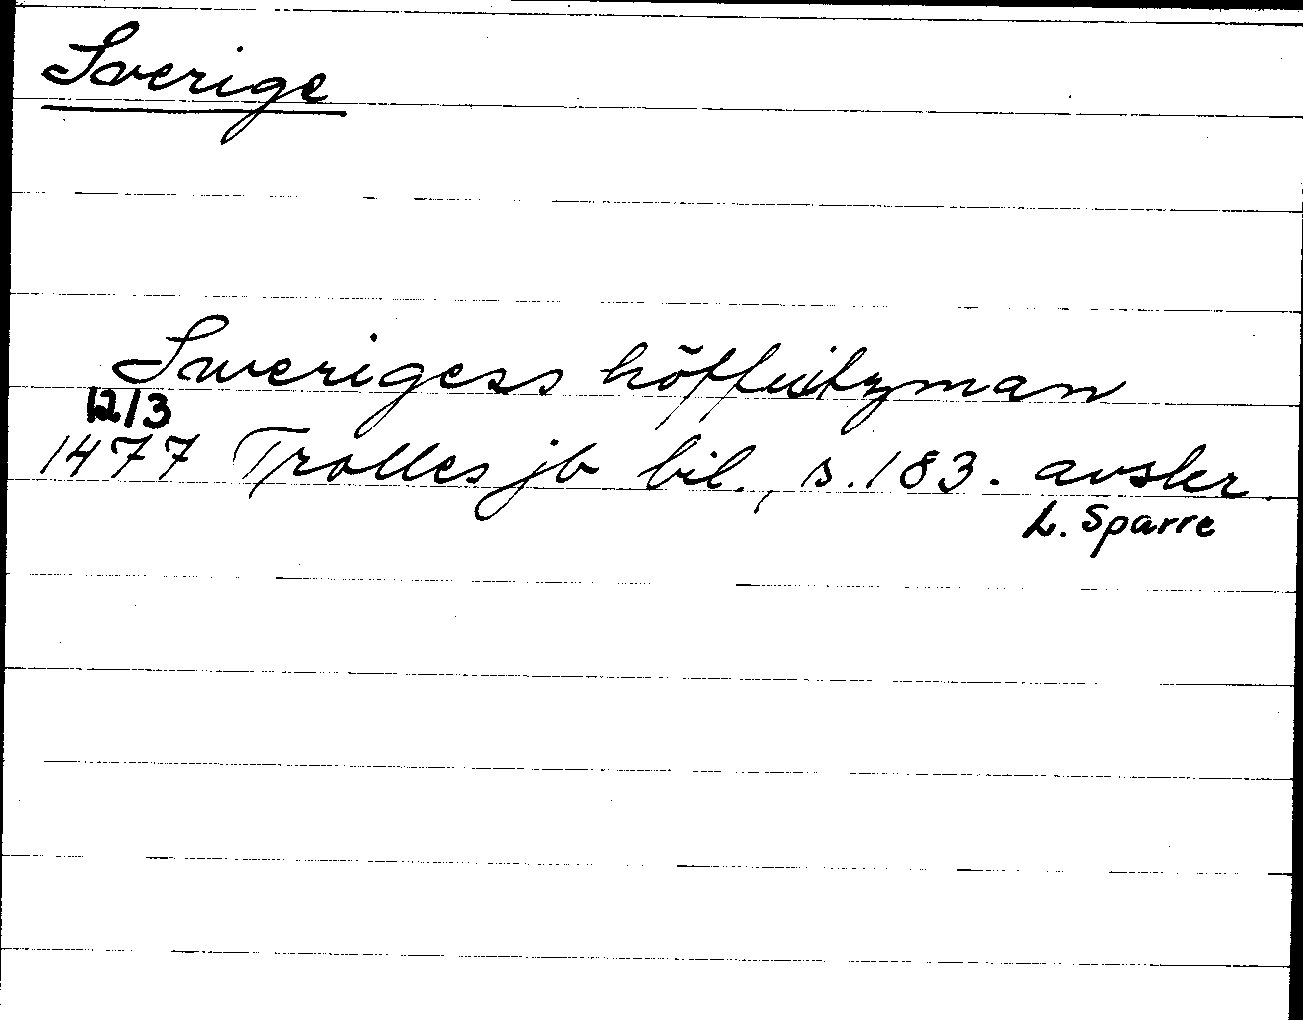 Sverige
Swerigess höffwitzman
12/3
1477 Trolles jb bil., s. 183. avskr.
L. Sparre